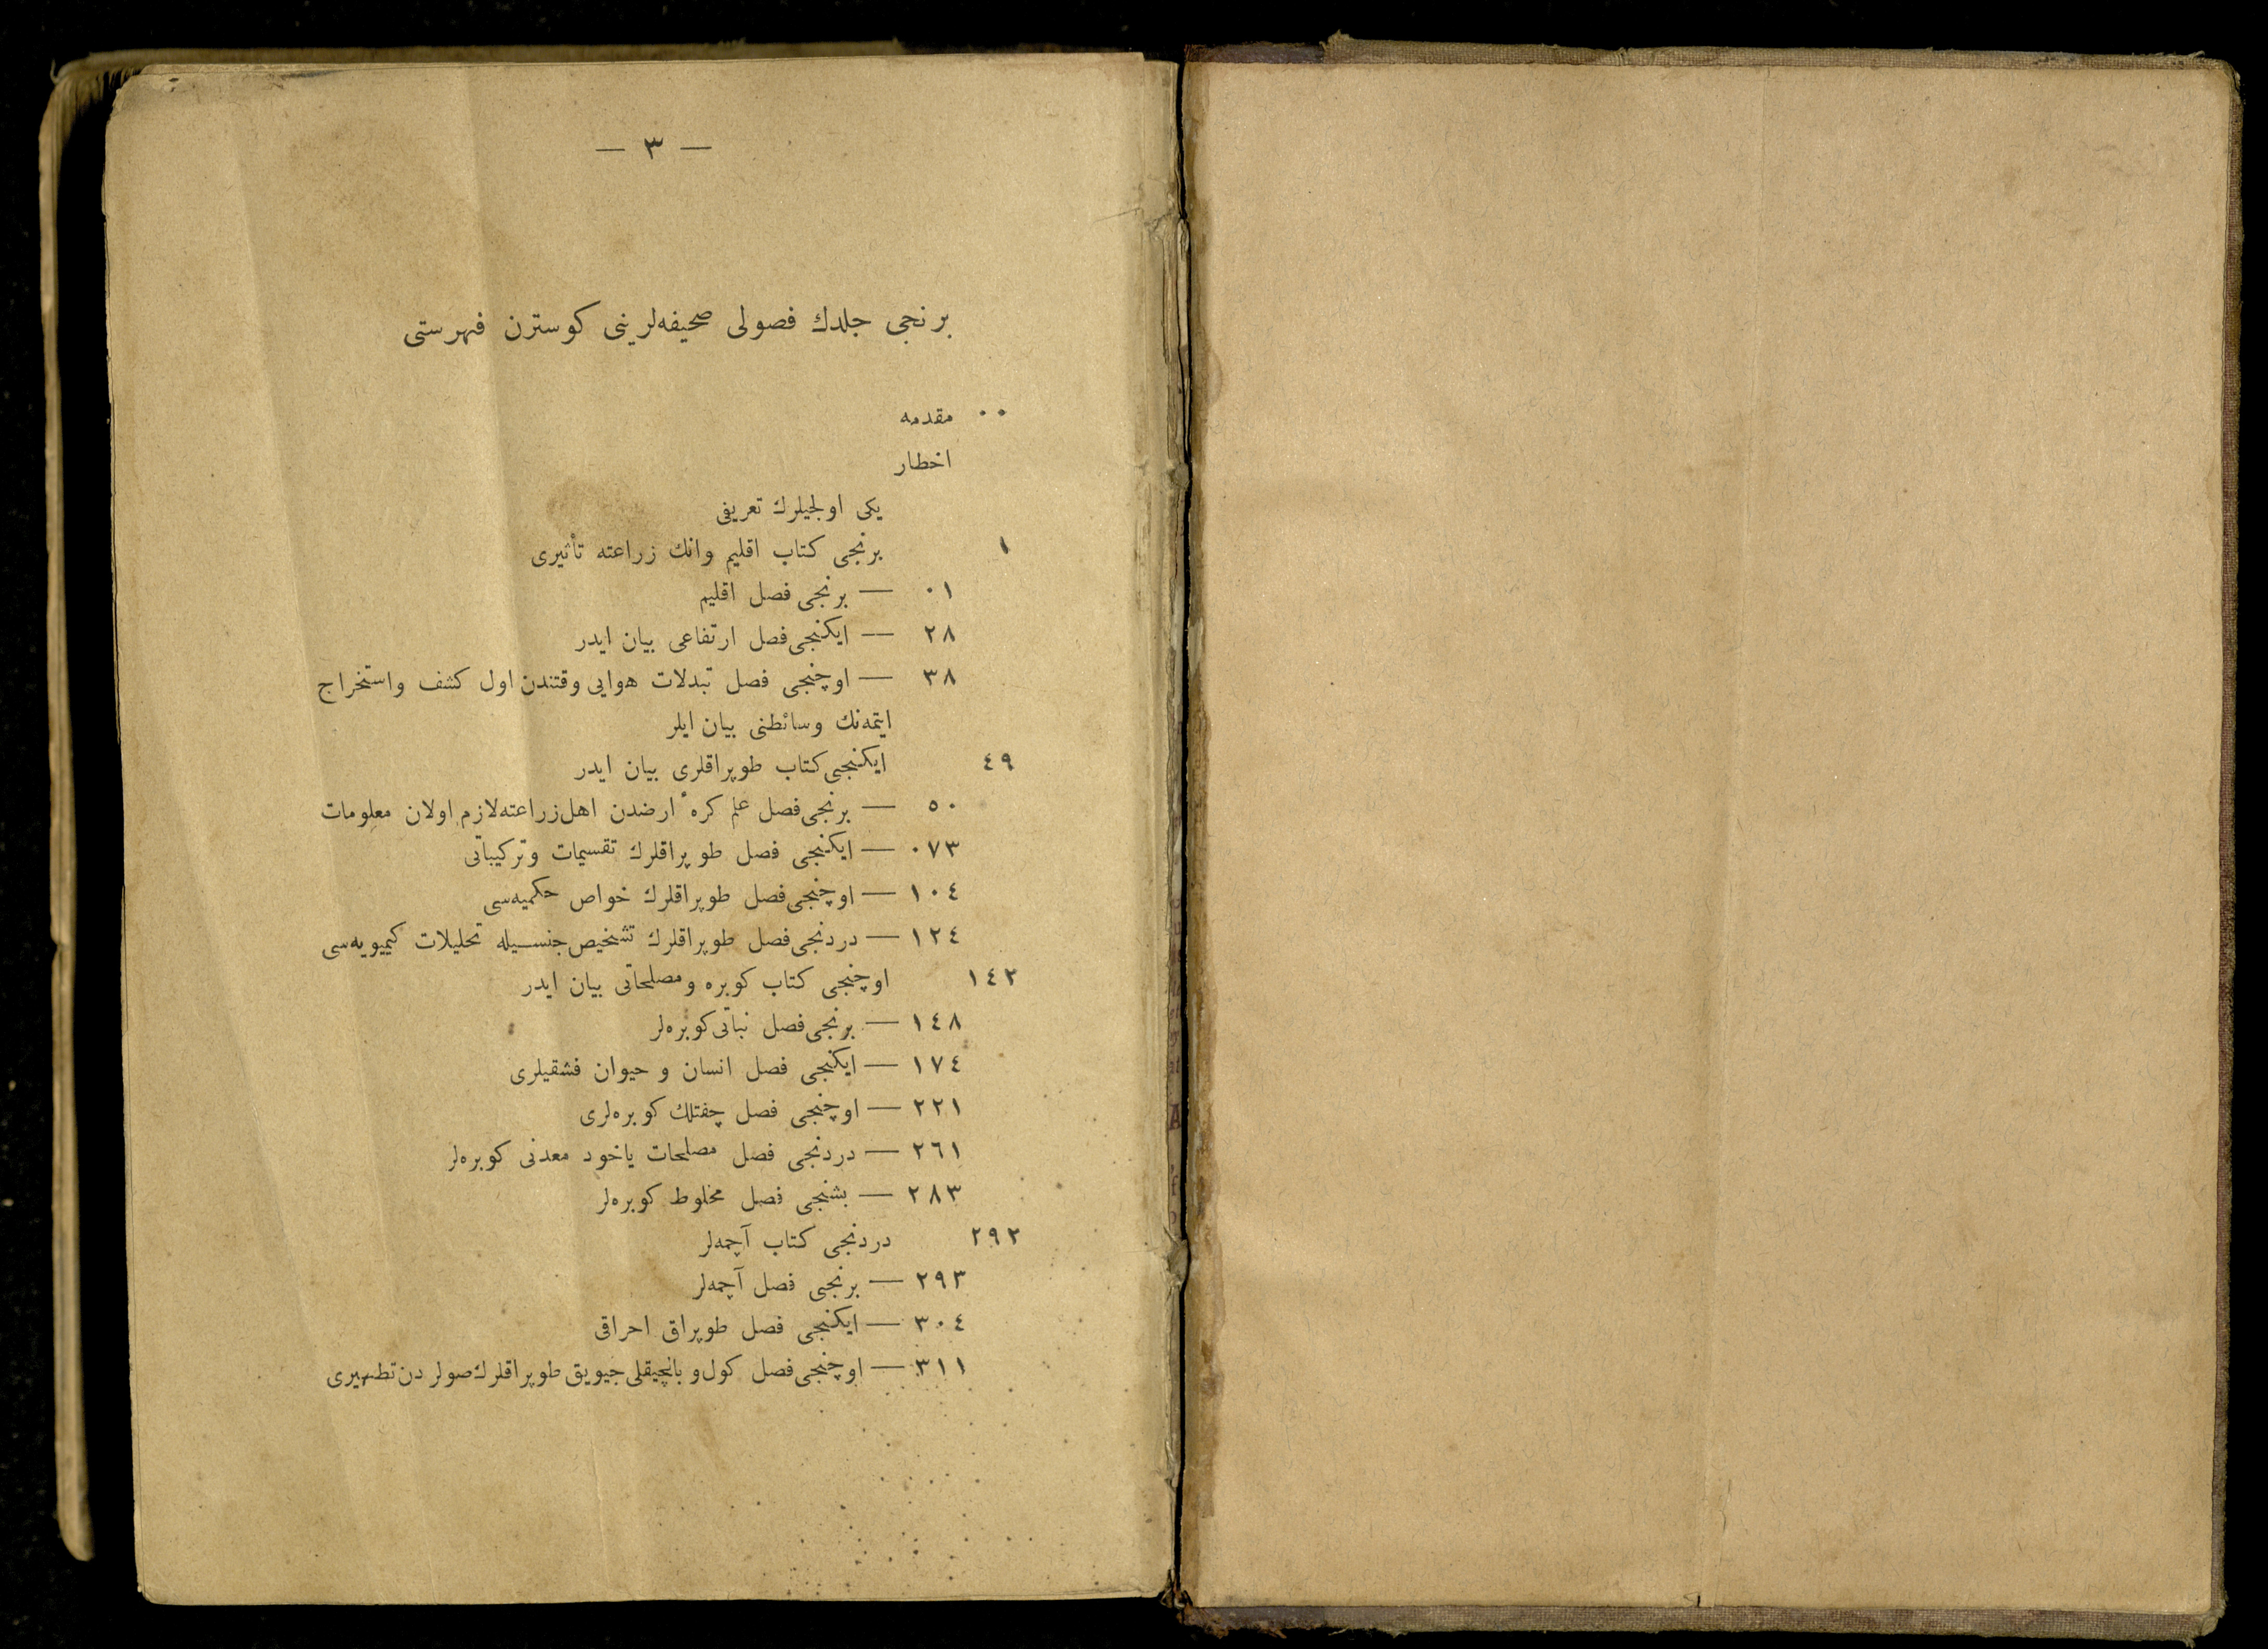 — ٣ —
برنجی جلدك فصولی صحیفه‌لرینی كوسترن فهرستی
٠٠ مقدمه
اخطار
یكی اولچیلرك تعریفی
١ برنجی كتاب اقلیم وانك زراعته تأثیری
٠١ — برنجی فصل اقلیم
٢٨ — ایكنجی فصل ارتفاعی بیان ایدر
٣٨ — اوچنجی فصل تبدلات هوایی وقتندن اول كشف واستخراج
ایتمه‌نك وسائطنی بیان ایلر
٤٩ ایكنجی كتاب طوپراقلری بیان ایدر
٥٠ — برنجی فصل علم كرهٔ ارضدن اهل زراعته لازم اولان معلومات
٠٧٣ — ایكنجی فصل طوپراقلرك تقسیمات وتركیباتی
١٠٤ — اوچنجی فصل طوپراقلرك خواص حكمیه‌سی
١٢٤ — دردنجی فصل طوپراقلرك تشخیص جنسیله تحلیلات كیمیویه‌سی
١٤٢ اوچنجی كتاب كوبره ومصلحاتی بیان ایدر
١٤٨ — برنجی فصل نباتی كوبره‌لر
١٧٤ — ایكنجی فصل انسان و حیوان فشقیلری
٢٢١ — اوچنجی فصل چفتلك كوبره‌لری
٢٦١ — دردنجی فصل مصلحات یاخود معدنی كوبره‌لر
٢٨٣ — بشنجی فصل مخلوط كوبره‌لر
٢٩٢ دردنجی كتاب آچمه‌لر
٢٩٣ — برنجی فصل آچمه‌لر
٣٠٤ — ایكنجی فصل طوپراق احراقی
٣١١ — اوچنجی فصل كول و بالچیقلی جیویق طوپراقلرك صولردن تطهیری